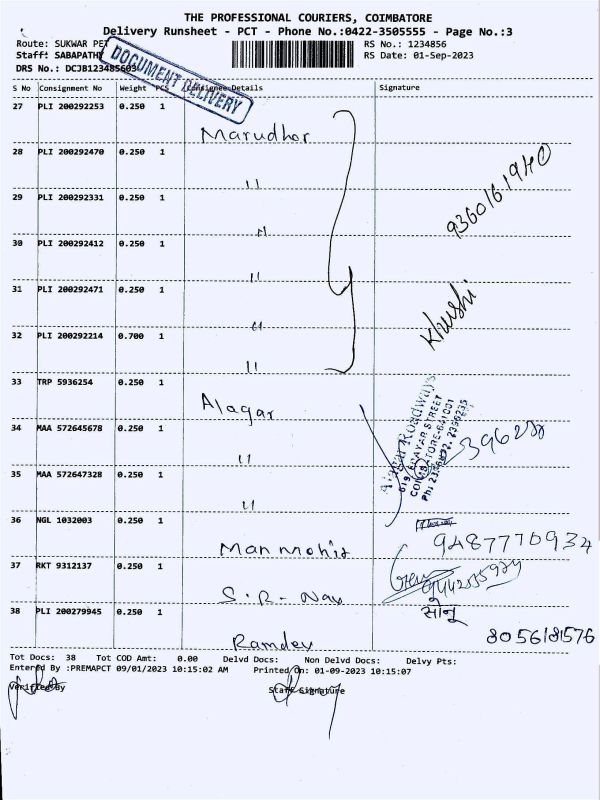 THE PROFESSIONAL COURIERS, COIMBATORE
Delivery Runsheet - PCT - Phone No.:0422-3505555 - Page No.:3
Route: SUKWAR PET
RS No.: 1234856
Staff: SABAPATHY
RS Date: 01-Sep-2023
DRS No.: DCJB123485603
DOCUMENT DELIVERY
S No Consignment No Weight PCS Consignee Details Signature
27 PLI 200292253 0.250 1 Marudhar
28 PLI 200292470 0.250 1 "
29 PLI 200292331 0.250 1 "
9360161940
30 PLI 200292412 0.250 1 "
31 PLI 200292471 0.250 1 "
Khushi
32 PLI 200292214 0.700 1 "
33 TRP 5936254 0.250 1 Alagar
Alagar Roadways
COIMBATORE-641001
34 MAA 572645678 0.250 1 "
35 MAA 572647328 0.250 1 "
36 NGL 1032003 0.250 1 Manmohit
9487770934
37 RKT 9312137 0.250 1 S.R-Nav
सोनू
38 PLI 200279945 0.250 1 Ramdev
8056181576
Tot Docs: 38 Tot COD Amt: 0.00 Delvd Docs: Non Delvd Docs: Delvy Pts:
Entered By :PREMAPCT 09/01/2023 10:15:02 AM Printed On: 01-09-2023 10:15:07
Verified By Staff Signature